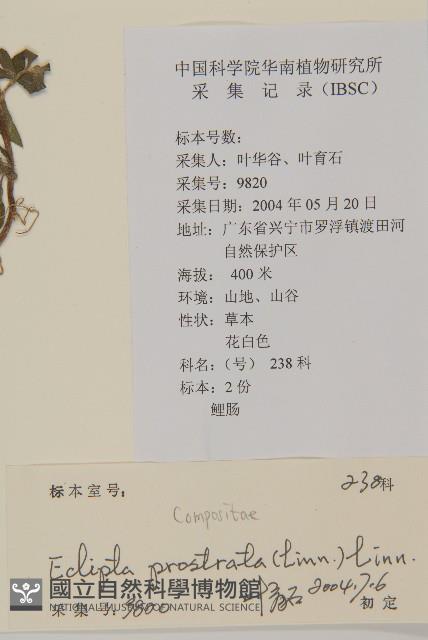 中国科学院华南植物研究所
采 集 记 录（IBSC）
标本号数：
采集人：叶华谷、叶育石
采集号：9820
采集日期：2004 年 05 月 20 日
地址：广东省兴宁市罗浮镇渡田河
自然保护区
海拔： 400 米
环境：山地、山谷
性状：草本
花白色
科名：（号） 238 科
标本：2 份
鲤肠
标本室号：
238科
Compositae
Eclipta prostrata (Linn.) Linn.
國立自然科學博物館
NATIONAL MUSEUM OF NATURAL SCIENCE
采 集 号
2004.7.6
初定